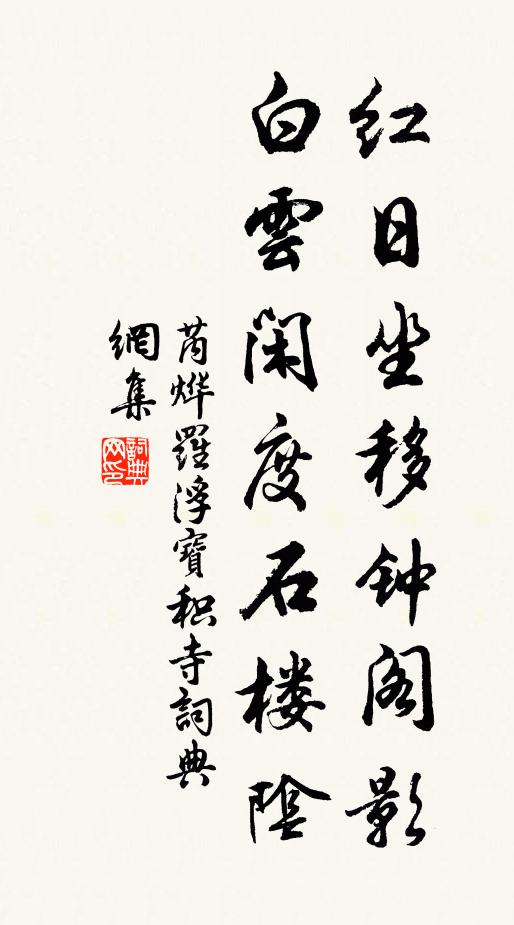 红日坐移钟阁影
白雲闲度石楼陰
芮烨羅浮寶积寺詞典
網集
詞典网印